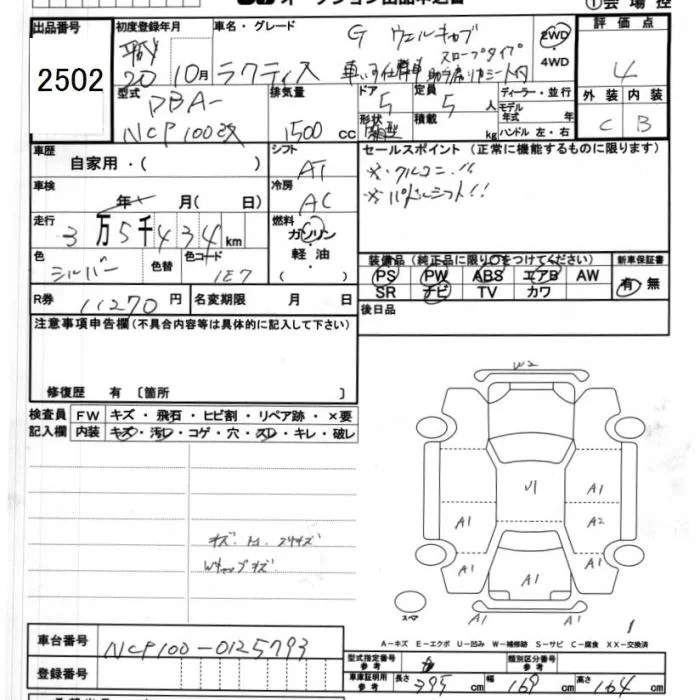 オークション出品申込書
①会場控
出品番号
2502
初度登録年月
平成
20 10月
車名・グレード
ラクティス
G ウェルキャブ
車いす仕様車 スロープタイプ
助手席リヤシート付
2WD
4WD
評価点
4
外装 内装
C B
型式
DBA-
NCP100改
排気量
1500 cc
ドア
5
形状
箱型
定員
5 人
積載
kg
ディーラー・並行
モデル年式 年
ハンドル 左・右
車歴
自家用・( )
シフト
AT
セールスポイント (正常に機能するものに限ります)
※・アルコニ・!!
※・パドルシフト!!
車検
年 月( 日)
冷房
AC
走行
3万5千434km
燃料
ガソリン
・
軽油
( )
色
シルバー
色替
色コード
1E7
装備品(純正品に限り○をつけてください)
PS PW ABS エアB AW
SR ナビ TV カワ
新車保証書
有 無
R券
11270 円
名変期限 月 日
後日品
注意事項申告欄(不具合内容等は具体的に記入して下さい)
修復歴 有 〔箇所 〕
検査員
記入欄
FW キズ・飛石・ヒビ割・リペア跡・×要
内装 キズ・汚レ・コゲ・穴・スレ・キレ・破レ
W2
U1
A1
A1
A2
A1
A1
A1
A1
スペア
A-キズ E-エクボ U-凹み W-補修跡 S-サビ C-腐食 XX-交換済
車台番号
NCP100-0125793
登録番号
型式指定番号
参考
類別区分番号
参考
車庫証明用
参考
長さ 395 cm
幅 169 cm
高さ 164 cm